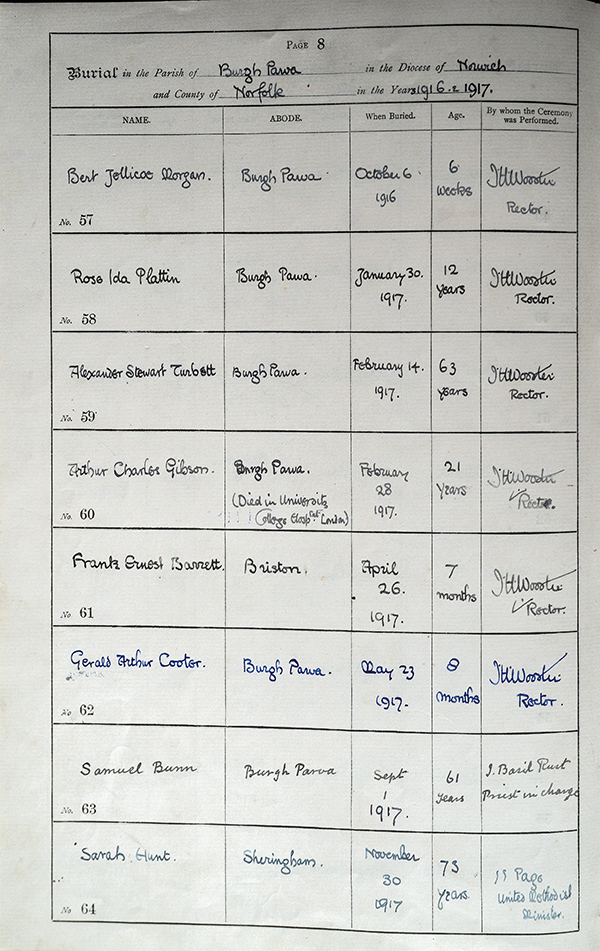 PAGE 8
Burial in the Parish of Burgh Pawa in the Diocese of Norwich
and County of Norfolk in the Years 1916 & 1917.
NAME. ABODE. When Buried. Age. By whom the Ceremony
was Performed.
Bert Jellicoe Morgan. Burgh Pawa. October 6 6 J H Wooster
1916 weeks Rector.
No. 57
Rose Ida Plattin Burgh Pawa. January 30. 12 J H Wooster
1917. years Rector.
No. 58
Alexander Stewart Turbett Burgh Pawa. February 14. 63 J H Wooster
1917. years Rector.
No. 59
Arthur Charles Gibson. Burgh Pawa. February 21 J H Wooster
(Died in University 28 Years Rector.
No. 60 College Hospital London) 1917.
Frank Ernest Barrett. Briston. April 7 J H Wooster
26. months Rector.
No 61 1917.
Gerald Arthur Cooter. Burgh Pawa. May 23 8 J H Wooster
1917. months Rector.
No 62
Samuel Bunn Burgh Parva Sept 61 J. Basil Rust
1 years Priest in charge
No. 63 1917.
Sarah Hunt. Sheringham. November 73 J J Page
30 years. United Methodist
No 64 1917 Minister.